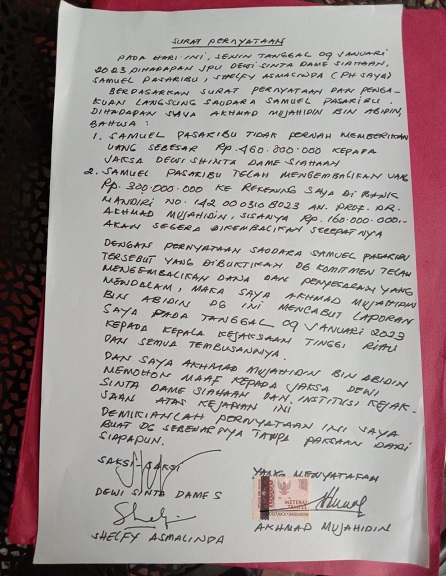 SURAT PERNYATAAN
PADA HARI INI, SENIN TANGGAL 09 JANUARI
2023 DIHADAPAN JPU DEWI SINTA DAME SIAHAAN,
SAMUEL PASARIBU, SHELFY ASMALINDA (PH SAYA)
BERDASARKAN SURAT PERNYATAAN DAN PENGA-
KUAN LANGSUNG SAUDARA SAMUEL PASARIBU.
DIHADAPAN SAYA AKHMAD MUJAHIDIN BIN ABIDIN,
BAHWA :
1. SAMUEL PASARIBU TIDAK PERNAH MEMBERIKAN
UANG SEBESAR Rp. 460.000.000 KEPADA
JAKSA DEWI SHINTA DAME SIAHAAN
2. SAMUEL PASARIBU TELAH MENGEMBALIKAN UANG
Rp. 300.000.000 KE REKENING SAYA DI BANK
MANDIRI NO. 142 0003108023 AN. PROF. DR.
AKHMAD MUJAHIDIN, SISANYA Rp. 160.000.000,-
AKAN SEGERA DIKEMBALIKAN SECEPATNYA
DENGAN PERNYATAAN SAUDARA SAMUEL PASARIBU
TERSEBUT YANG DIBUKTIKAN DG KOMITMEN TELAH
MENGEMBALIKAN DANA DAN PENYESALAN YANG
MENDALAM, MAKA SAYA AKHMAD MUJAHIDIN
BIN ABIDIN DG INI MENCABUT LAPORAN
SAYA PADA TANGGAL 09 JANUARI 2023
KEPADA KEPALA KEJAKSAAN TINGGI RIAU
DAN SEMUA TEMBUSANNYA.
DAN SAYA AKHMAD MUJAHIDIN BIN ABIDIN
MEMOHON MAAF KEPADA JAKSA DEWI
SINTA DAME SIAHAAN DAN INSTITUSI KEJAK-
SAAN ATAS KEJADIAN INI
DEMIKIANLAH PERNYATAAN INI SAYA
BUAT DG SEBENARNYA TANPA PAKSAAN DARI
SIAPAPUN.
SAKSI-SAKSI
YANG MENYATAKAN
METERAI
TEMPEL
DEWI SINTA DAME S
AKHMAD MUJAHIDIN
SHELFY ASMALINDA